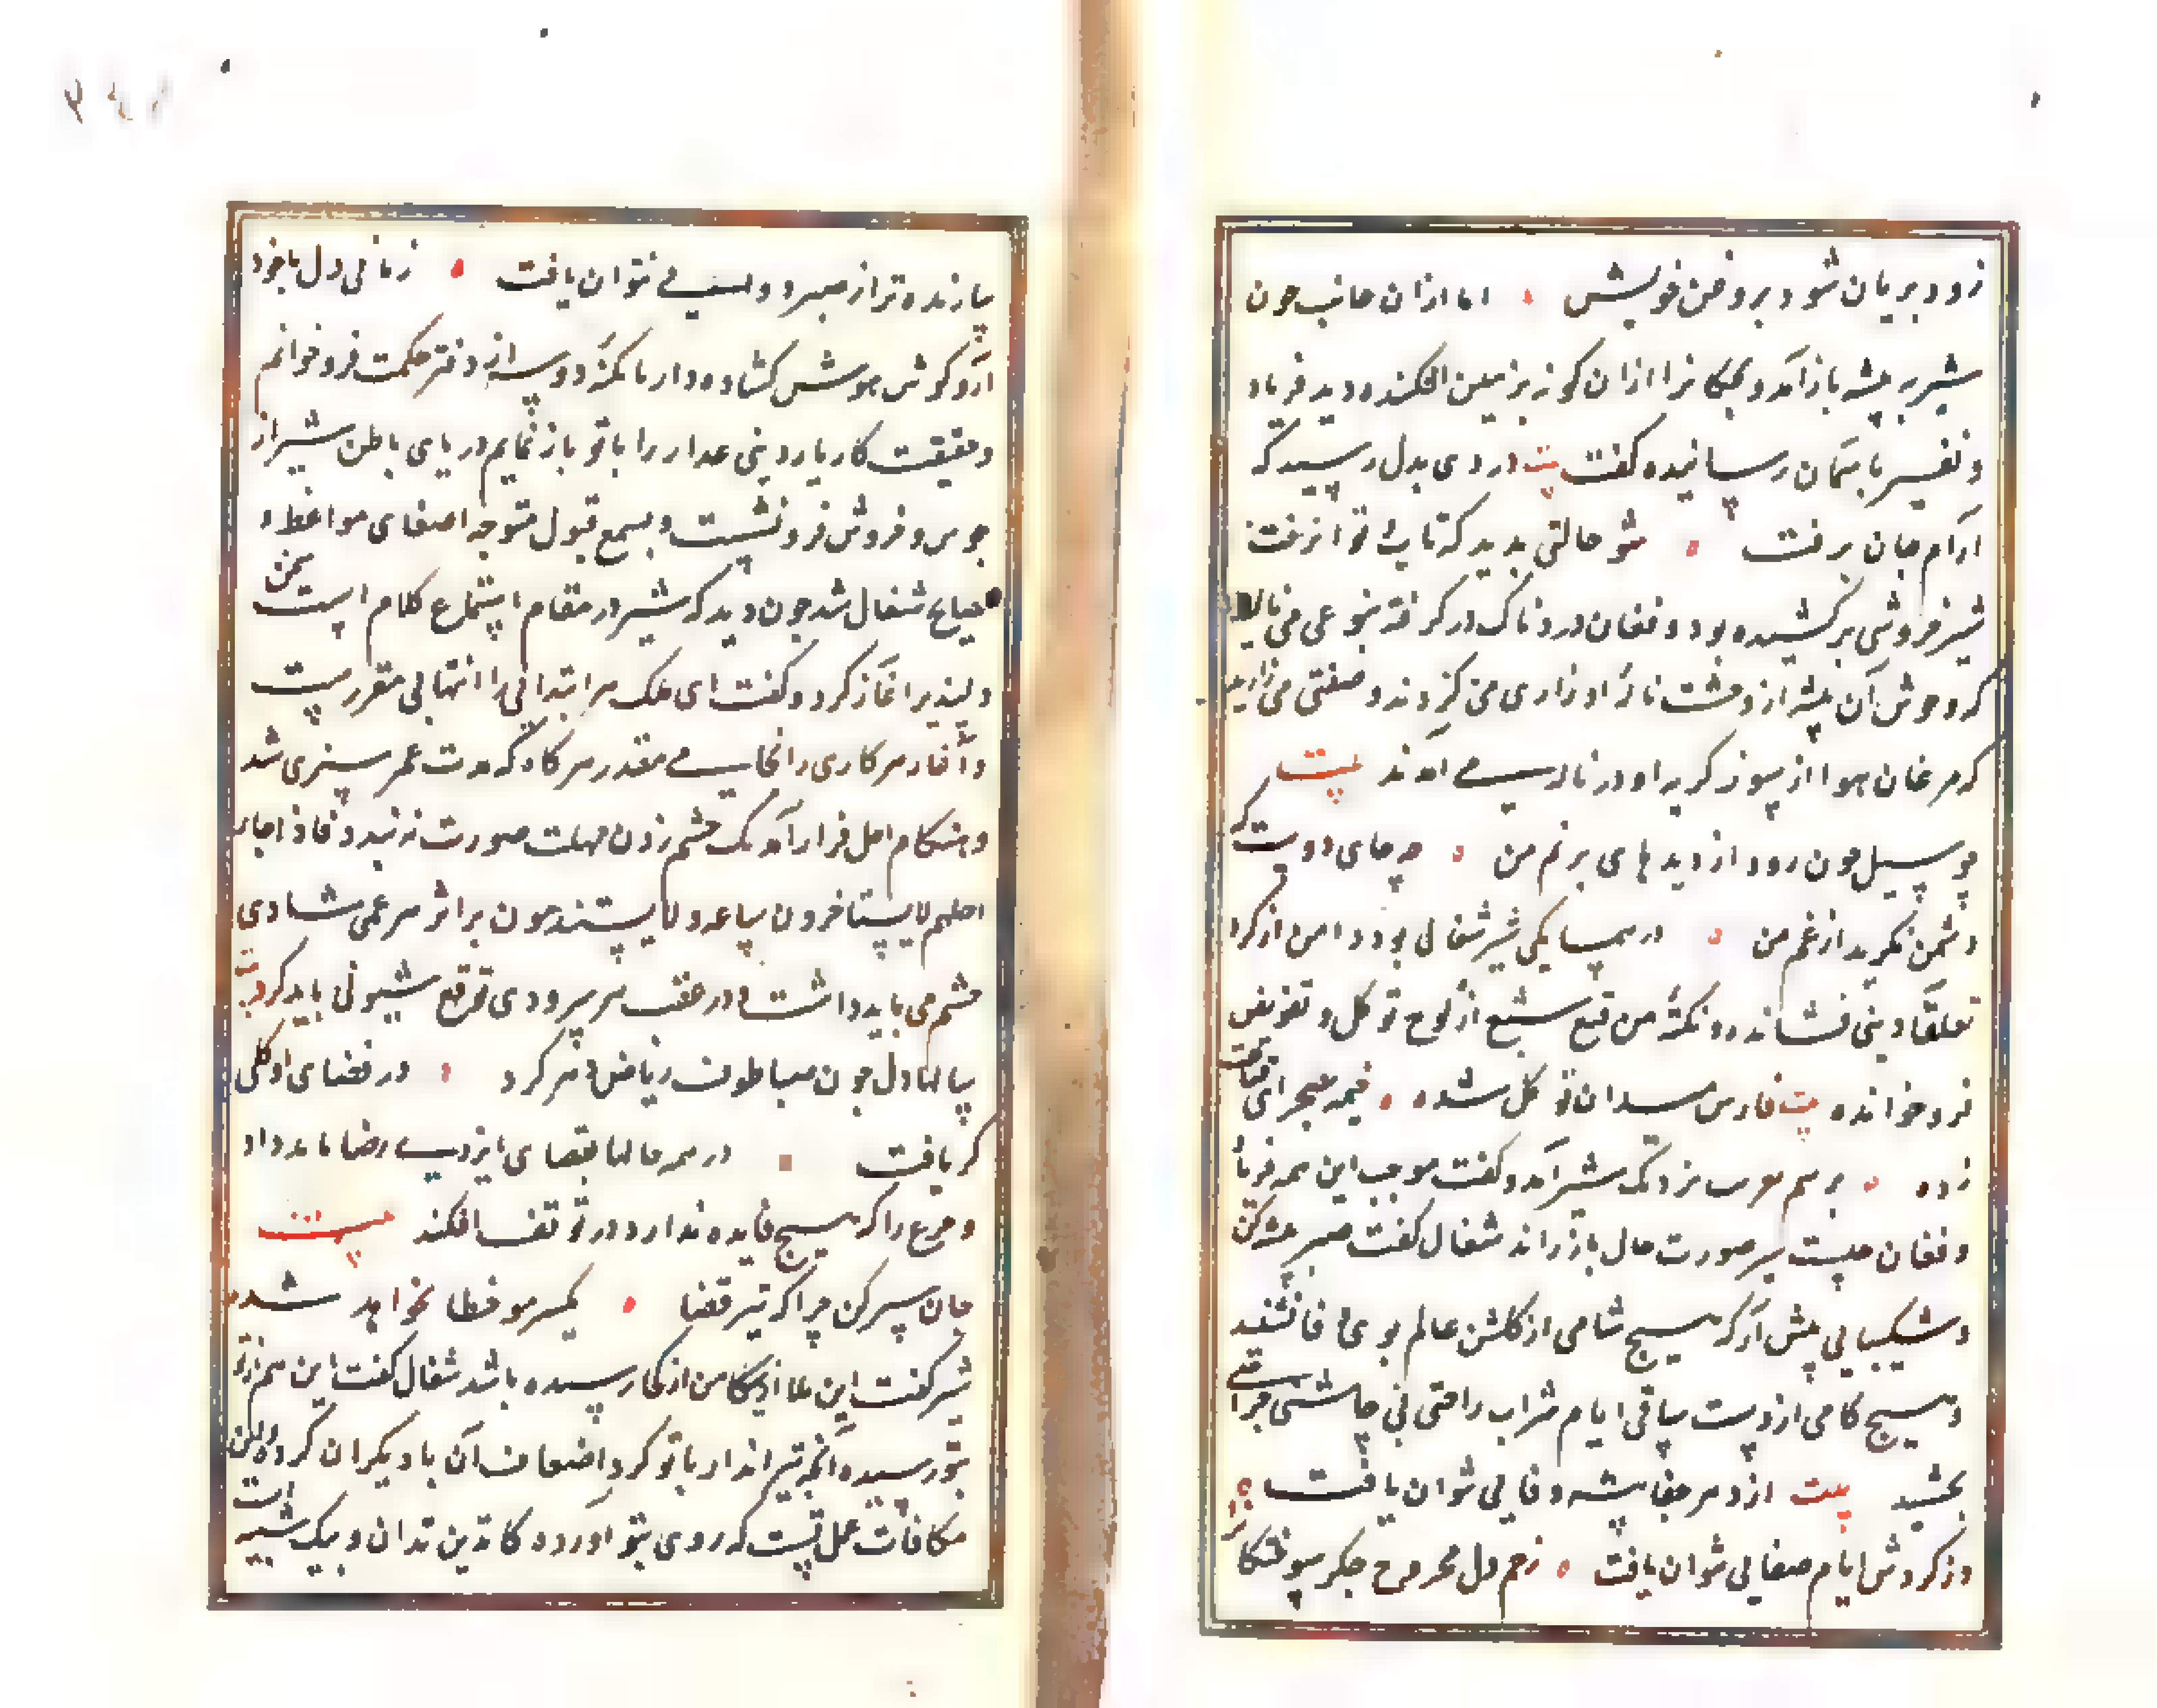 زود بریان شود بروغن خویش ، اما ازان جانب چون
شیر به بیشه باز آمد و بچکانرا ازان کونه بر زمین افکنده دید فریاد
و نفیر باسمان رسانیده کفت بیت دردی بدل رسید که
آرام جان برفت ، شو حالتی بدید که تاب و توان برفت
شیر خروشی برکشیده بود و فغان دردناک در کرفته بنوعی می نالید
که وحوش آن بیشه از وحشت نالهٔ او زاری می کردند و صفتی می زارید
که مرغان هوا از سوز کریه او در ناله می آمدند بیت
چو سیل خون رود از دیدهای پر نم من ، چه جای دوست که
دشمن بکرید از غم من ، در همسایکی شیر شغالی بود دامن از کرد
تعلقات دنیی فشانده و نکتهٔ من قنع شبع از لوح توکل و تفویض
فرو خوانده بیت فارس میدان توکل شده ، خیمه بصحرای قناعت
زده ، برسم تعزیت نزدیک شیر آمد و کفت موجب این همه فریاد
و فغان چیست شیر صورت حال باز راند شغال کفت صبر پیشه کن
و شکیبایی پیش آر که هیچ مشامی از کلشن عالم بوی وفا نشنید
و هیچ کامی از دست ساقی ایام شراب راحتی بی چاشنی جراحتی
نچشید بیت از دهر جفا پیشه وفایی نتوان یافت ،
وز کردش ایام صفایی نتوان یافت ، زخم دل مجروح جکر سوختکانرا
سازنده تر از صبر دوایی نتوان یافت ، زمانی دل با خود
آر و کوش هوش کشاده دار تا نکتهٔ دو سه از دفتر حکمت فرو خوانم
و حقیقت کار بار دنیی غدار را با تو باز نمایم دریای باطن شیر از
جوش و خروش فرو نشست و بسمع قبول متوجه اصغای مواعظ و
نصایح شغال شد چون دید که شیر در مقام استماع کلام است سخن
دلپذیر آغاز کرد و کفت ای ملک هر ابتدایی را انتهایی مقررست
و آغاز هر کاری را انجامی مقدر هر کاه که مدت عمر سپری شد
و هنکام اجل فراز آمد یک چشم زدن مهلت صورت نه بندد فاذا جاء
اجلهم لا یستاخرون ساعه و لا یستقدمون بر اثر هر غمی شادی
چشم می باید داشت و در عقب هر سرودی توقع شیونی باید کرد بیت
سالها دل چون صبا طوف ریاض دهر کرد ، در فضای او کلی
کم یافت ، در همه حالها بقضای ایزدی رضا باید داد
و جزع را که هیچ فایده ندارد در توقف افکند بیت
جان سپر کن چرا که تیر قضا ، یکسر مو خطا نخواهد شد
شیر کفت این بلا بر بچکان من از کجا رسیده باشد شغال کفت این هم از تو
بتو رسیده آنچه تیر انداز با تو کرد اضعاف آن با دیکران کرده و این
مکافات عمل تست که روی بتو آورده کما تدین تدان و نیک شبیه است